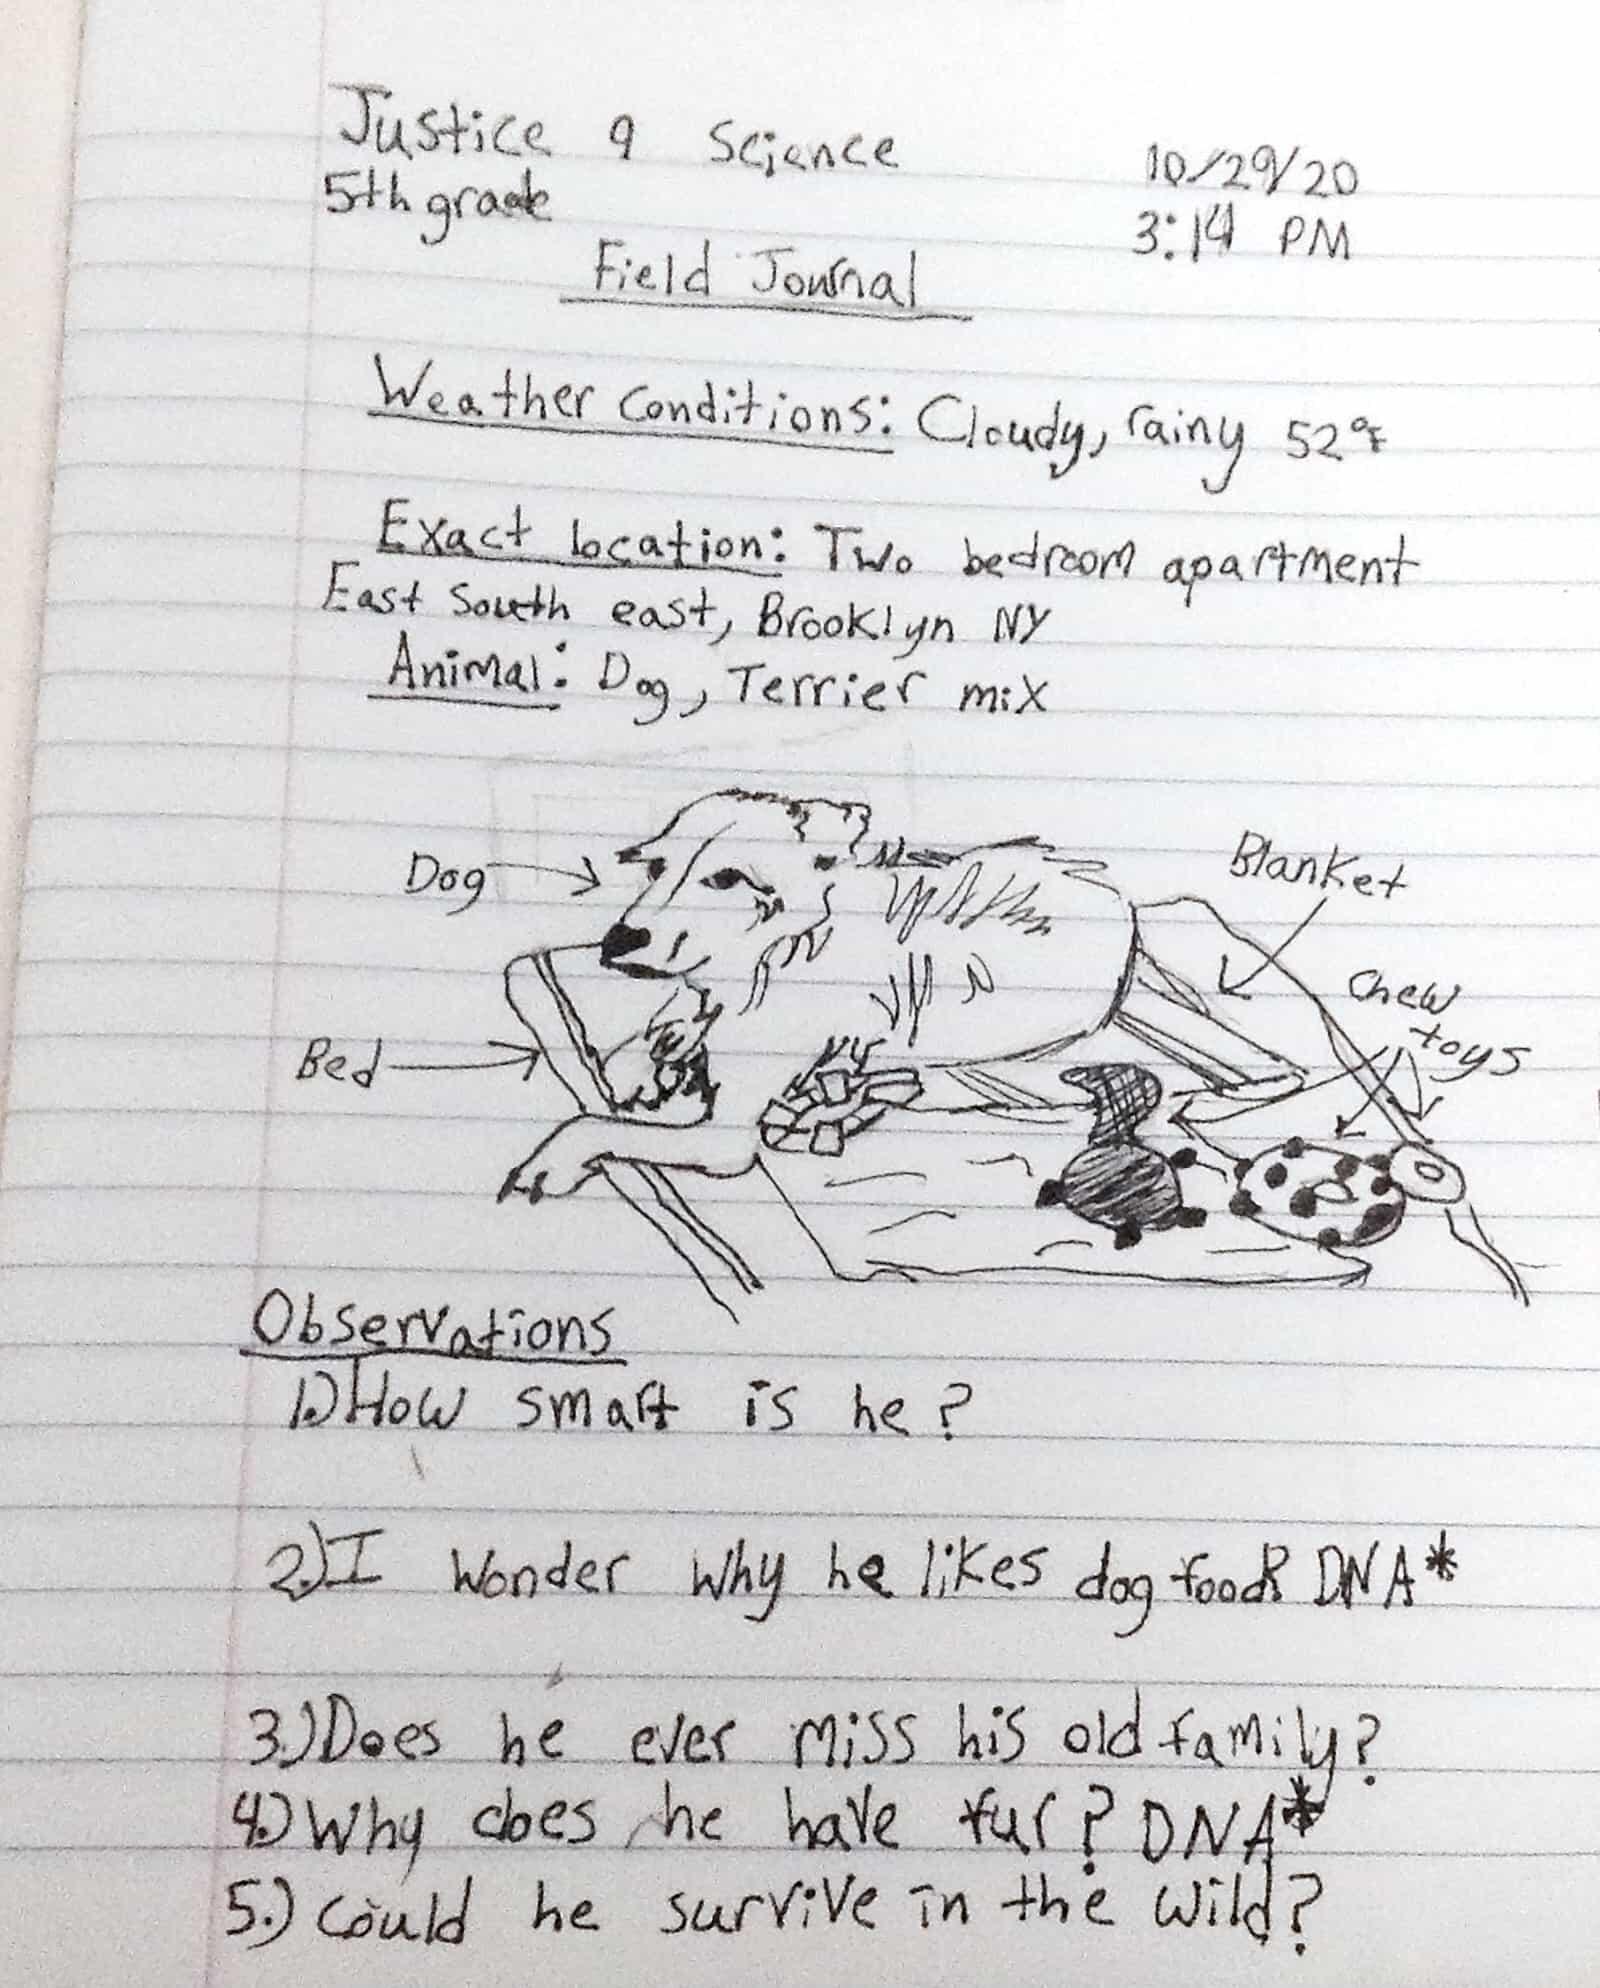 Justice 9 Science 10/29/20
5th grade 3:14 PM
Field Journal
Weather Conditions: Cloudy, rainy 52°F
Exact location: Two bedroom apartment
East South east, Brooklyn NY
Animal: Dog, Terrier mix
Dog
Blanket
Chew
toys
Bed
Observations
1.) How smart is he?
2.) I wonder why he likes dog food? DNA*
3.) Does he ever miss his old family?
4.) Why does he have fur? DNA*
5.) Could he survive in the wild?